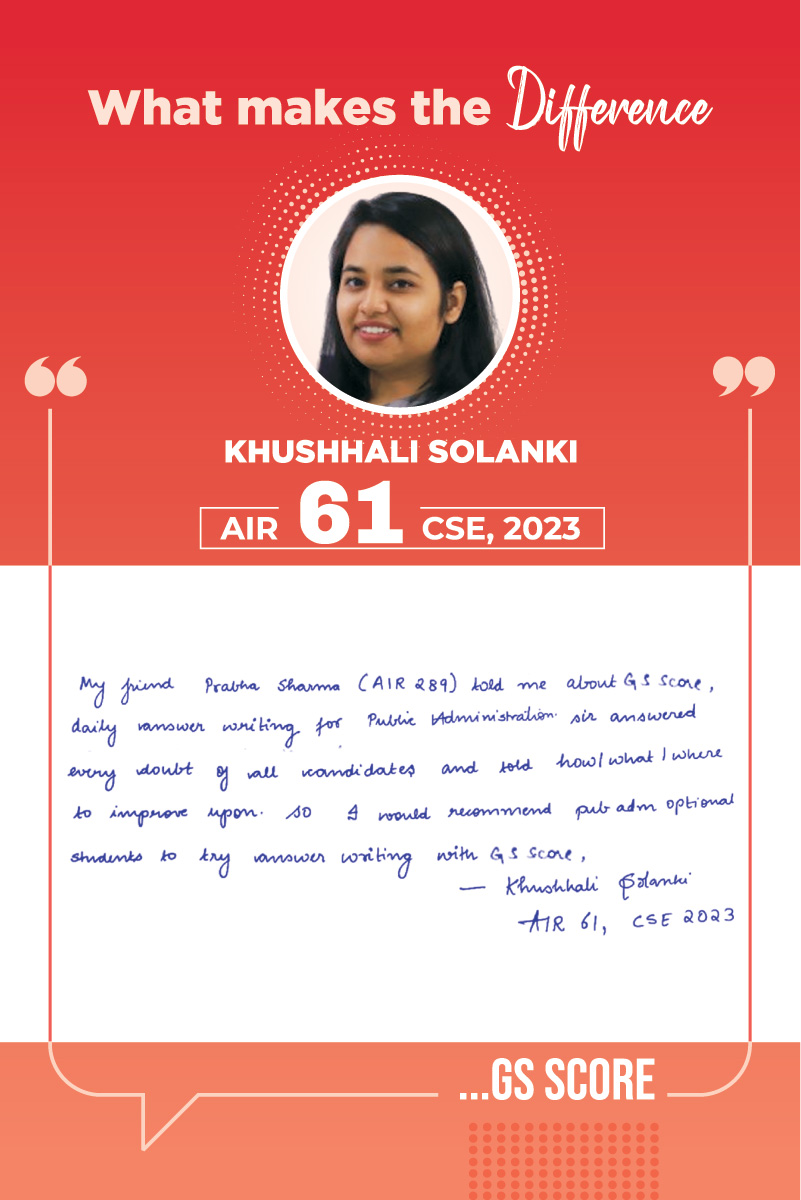 What makes the Difference
KHUSHHALI SOLANKI
AIR 61 CSE, 2023
My friend Prabha Sharma (AIR 289) told me about GS Score,
daily answer writing for Public Administration. sir answered
every doubt of all candidates and told how/what/where
to improve upon. so I would recommend pub adm optional
students to try answer writing with GS Score,
— Khushhali Solanki
AIR 61, CSE 2023
...GS SCORE